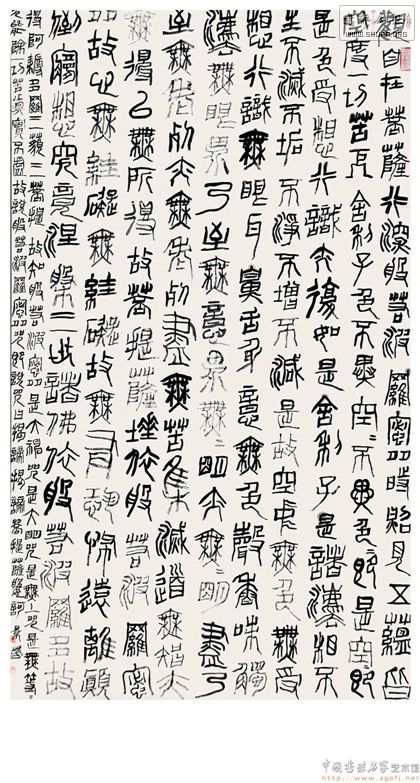 觀自在菩薩行深般若波羅蜜多時照見五蘊皆
空度一切苦厄舍利子色不異空空不異色色即是空空即
是色受想行識亦復如是舍利子是諸法空相不
生不滅不垢不淨不增不減是故空中無色無受
想行識無眼耳鼻舌身意無色聲香味觸
法無眼界乃至無意識界無無明亦無無明盡乃
至無老死亦無老死盡無苦集滅道無智亦
無得以無所得故菩提薩埵依般若波羅蜜
多故心無罣礙無罣礙故無有恐怖遠離顛
倒夢想究竟涅槃三世諸佛依般若波羅蜜多故
得阿耨多羅三藐三菩提故知般若波羅蜜多是大神咒是大明咒是無上咒是無等等
咒能除一切苦真實不虛故說般若波羅蜜多咒即說咒曰揭諦揭諦菩提薩婆訶
中国书法名家艺术馆